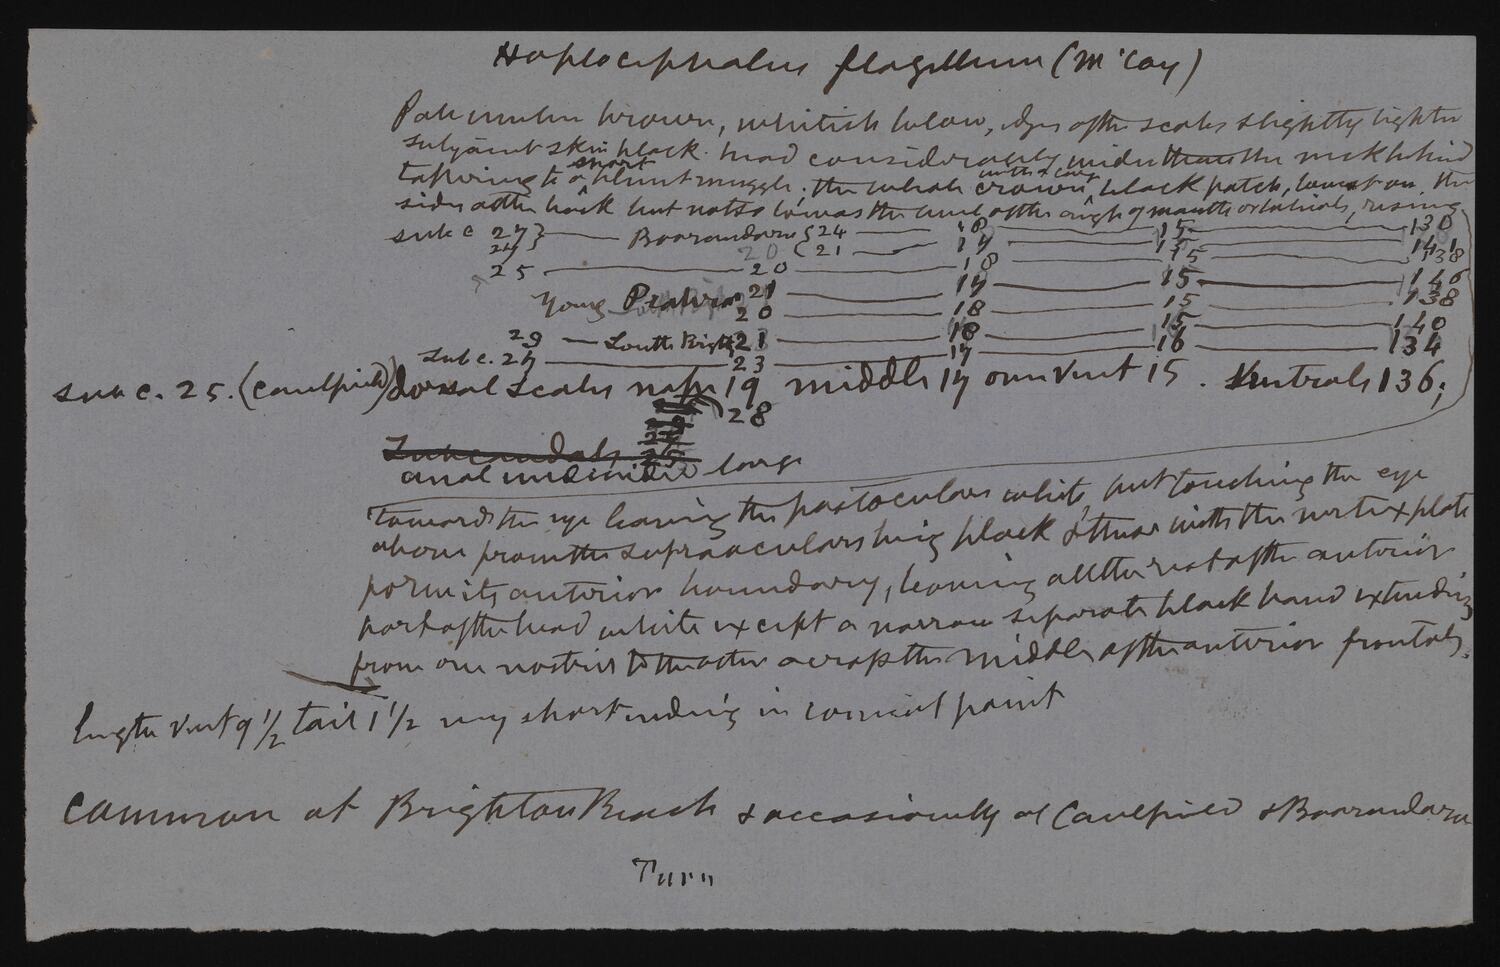 Hoplocephalus flagellum (McCoy)
Pale umber brown, whitish below, edges of the scales slightly lighter
subjacent skin black. head considerably wider than the neck behind
tapering to a short blunt muzzle; the whole crown with a large black patch, lowest on the
sides at the back but not so low as the line of the angle of mouth or labials, rising
sub c 27} Boorandara {24 18 15 130
24 20 {21 17 15 141
25 20 18 138
Young Prahran 21 17 15 146
20 18 15 138
29 South Brighton 21 18 15 140
Sub c. 27 23 17 16 134
Sub c. 25. (Caulfield) dorsal scales nape 19 middle 17 over vent 15. Ventrals 136;
28
Subcaudals 25
anal undivided large
towards the eye leaving the postoculars white, but touching the eye
above from the supraoculars being black & these with the vertex plate
form its anterior boundary, leaving all the rest of the anterior
part of the head white except a narrow separate black band extending
from one nostril to the other across the middle of the anterior frontals.
length vent 9 1/2 tail 1 1/2 very short ending in conical point
Common at Brighton Beach & occasionally at Caulfield & Boorandara
Turn